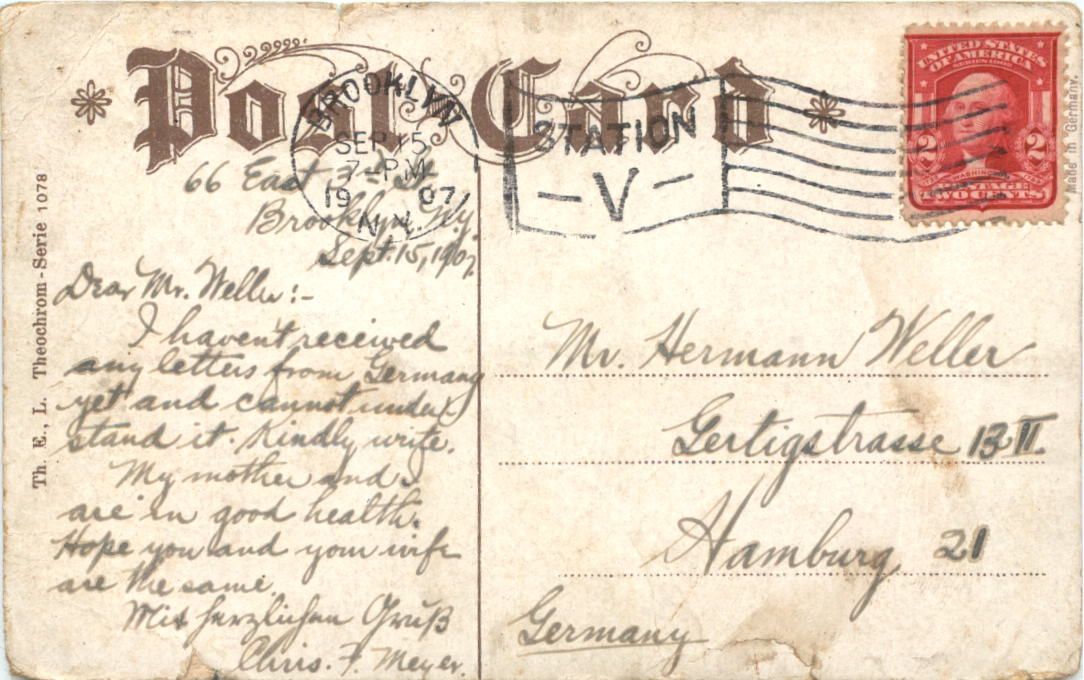 Post Card
BROOKLYN
SEP 15
7-P.M.
19 07
N.Y.
STATION
- V -
UNITED STATES
OF AMERICA
SERIES 1902
2 2
WASHINGTON
POSTAGE
TWO CENTS
Made in Germany.
Th. E., L. Theochrom-Serie 1078
66 East 3rd St
Brooklyn N.Y.
Sept. 15, 1907.
Dear Mr. Weller:-
I haven't received
any letters from Germany
yet and cannot under-
stand it. Kindly write.
My mother and I
are in good health.
Hope you and your wife
are the same.
Mit herzlichen Gruß
Chris. F. Meyer.
Mr. Hermann Weller
Gertigstrasse 13 II.
Hamburg 21
Germany